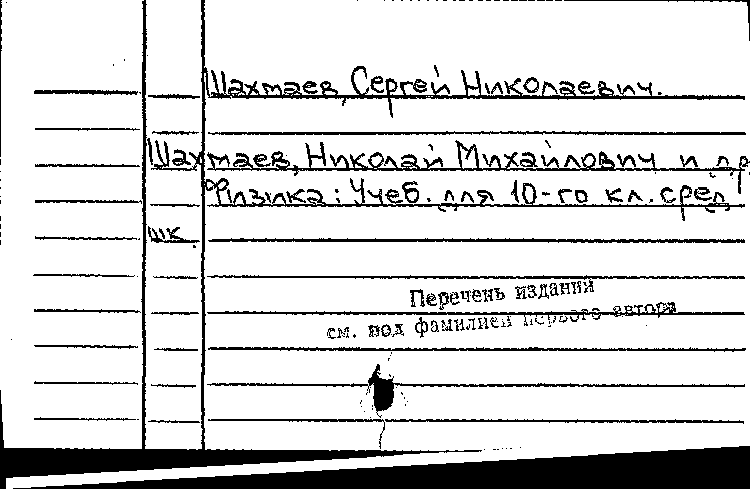 Шахмаев, Сергей Николаевич.
Шахмаев, Николай Михайлович и др.
Физика: Учеб. для 10-го кл. сред.
шк.
Перечень изданий
см. под фамилией первого автора